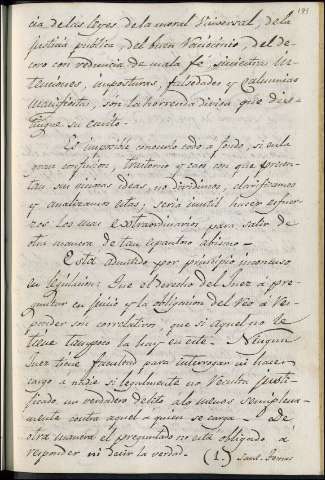 cia de las leyes de la moral Universal, de la
justicia publica, del buen raciocinio, del de-
coro con redundancia mala fe, siniestras in-
tenciones, imposturas, falsedades y calumnias
manifiestas, son la horrenda divisa que dis-
tingue su escrito.
Es imposible conocerlo todo a fondo, si en la
gran confusion, trastorno y caos con que presen-
tan sus mismas ideas, no dividimos, clarificamos
y analizamos estas; seria inutil hacer esfuer-
zos los mas extraordinarios para salir de
otra manera de tan espantoso abismo.
Está admitido por principio inconcuso
en legislacion: Que el derecho del Juez á pre-
guntar en juicio y la obligacion del Reo á res-
ponder son correlativos, que si aquel no le
tiene tampoco la hay en este. Ningun
Juez tiene facultad para interrogar ni hacer
cargo a nadie si legalmente no resulta justi-
ficado un verdadero delito a lo menos semiplena-
mente contra aquel a quien se carga. De
otra manera el preguntado no está obligado a
responder ni decir la verdad. (1.) Sant. Tomas